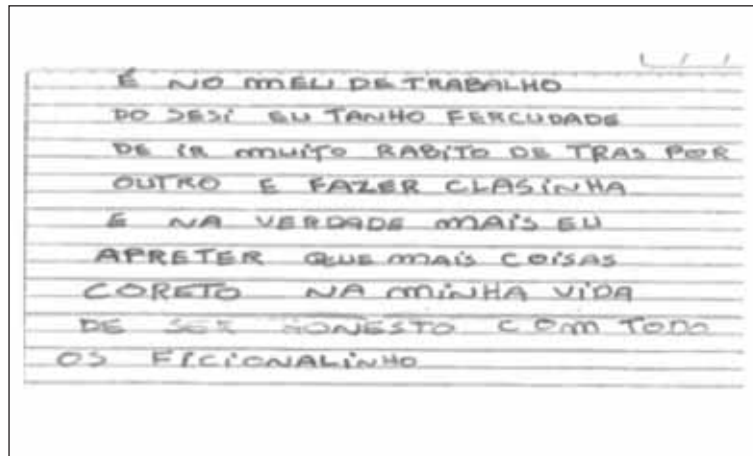 É NO MEU DE TRABALHO
DO SESI EU TANHO FERCUDADE
DE IR MUITO RABITO DE TRAS POR
OUTRO E FAZER CLASINHA
E NA VERDADE MAIS EU
APRETER QUE MAIS COISAS
CORETO NA MINHA VIDA
DE SER HONESTO COM TODO
OS FICIONALINHO